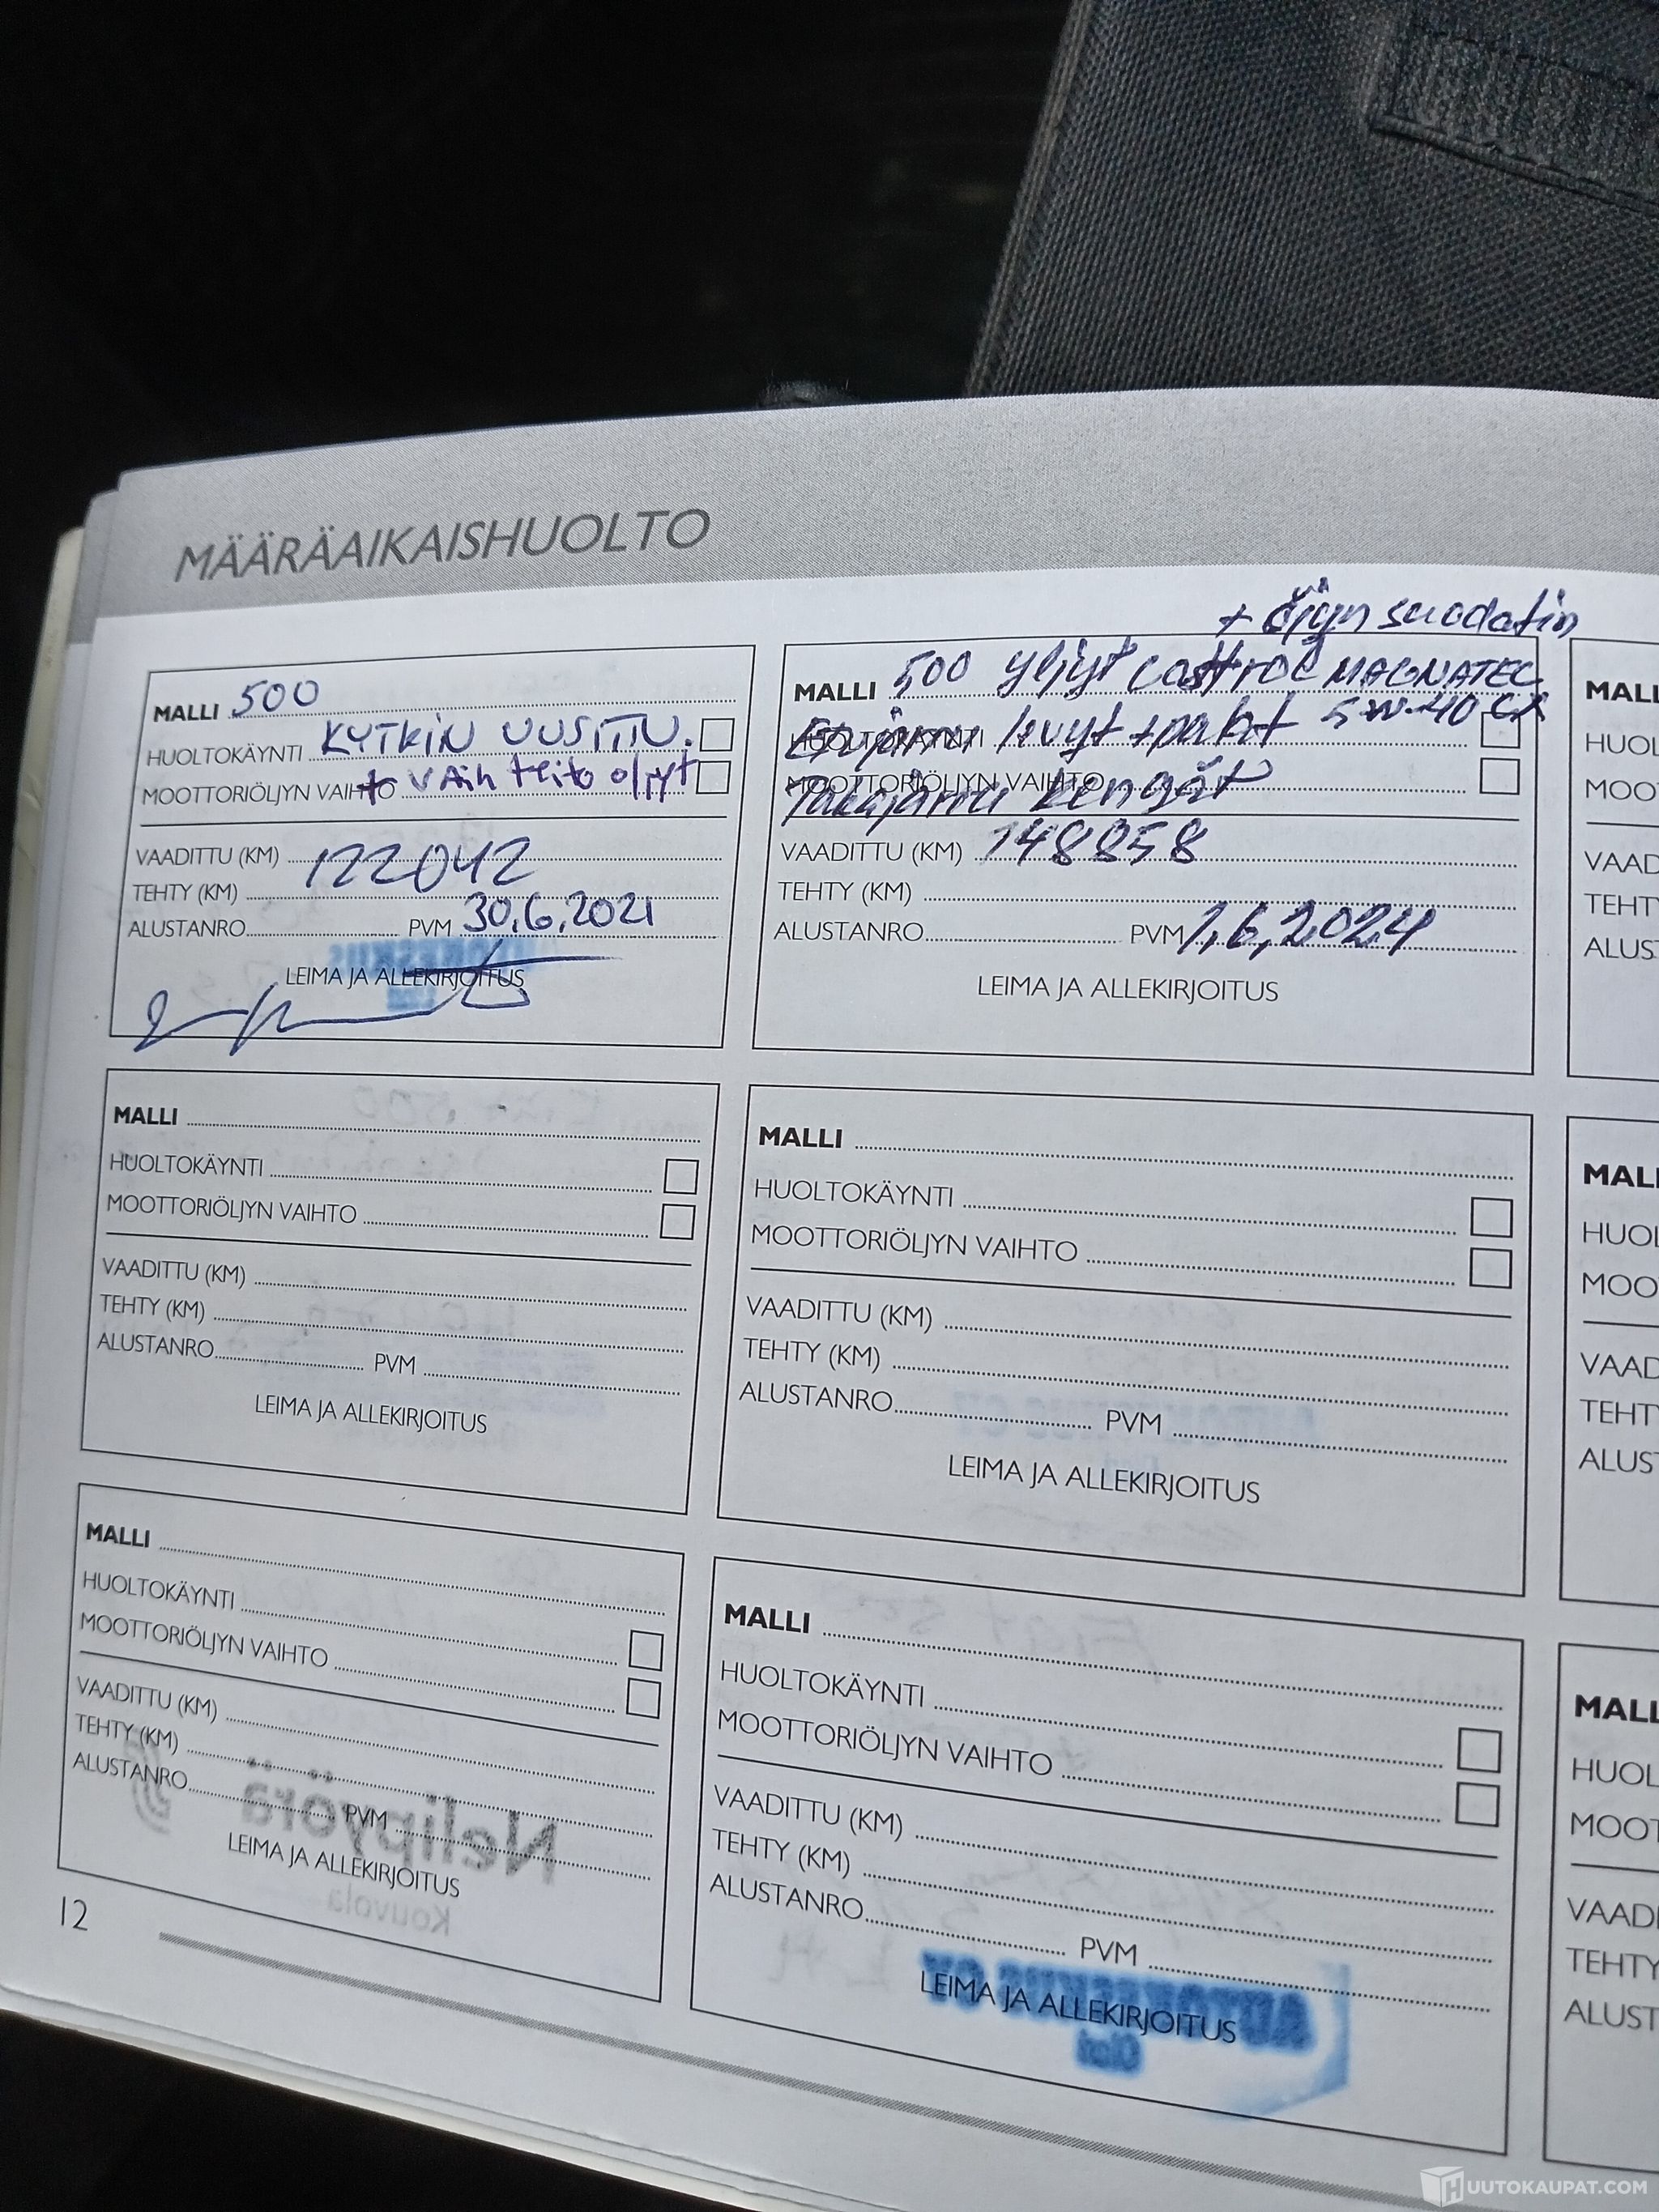 MÄÄRÄAIKAISHUOLTO
MALLI 500
HUOLTOKÄYNTI KYTKIN UUSITTU.
MOOTTORIÖLJYN VAIHTO + VAIhteisto öljyt
VAADITTU (KM) 122042
TEHTY (KM)
ALUSTANRO PVM 30.6.2021
LEIMA JA ALLEKIRJOITUS
+ öljyn suodatin
MALLI 500 yljyt castrol MAGNATEC
HUOLTOKÄYNTI levyt + palat 5-W-40 C3
MOOTTORIÖLJYN VAIHTO Takajarru kengät
VAADITTU (KM) 148858
TEHTY (KM)
ALUSTANRO PVM 1,6,2024
LEIMA JA ALLEKIRJOITUS
MALL
HUOL
MOO
VAAD
TEHT
ALUS
MALLI
HUOLTOKÄYNTI
MOOTTORIÖLJYN VAIHTO
VAADITTU (KM)
TEHTY (KM)
ALUSTANRO PVM
LEIMA JA ALLEKIRJOITUS
MALLI
HUOLTOKÄYNTI
MOOTTORIÖLJYN VAIHTO
VAADITTU (KM)
TEHTY (KM)
ALUSTANRO PVM
LEIMA JA ALLEKIRJOITUS
MALL
HUOL
MOO
VAAD
TEHT
ALUST
MALLI
HUOLTOKÄYNTI
MOOTTORIÖLJYN VAIHTO
VAADITTU (KM)
TEHTY (KM)
ALUSTANRO PVM
LEIMA JA ALLEKIRJOITUS
Nelipyörä
Kouvola
MALLI
HUOLTOKÄYNTI
MOOTTORIÖLJYN VAIHTO
VAADITTU (KM)
TEHTY (KM)
ALUSTANRO PVM
LEIMA JA ALLEKIRJOITUS
MALL
HUOL
MOOT
VAADI
TEHTY
ALUST
12
HUUTOKAUPAT.COM